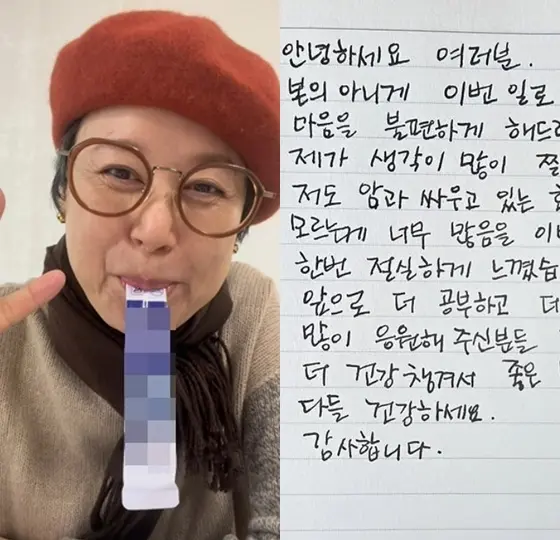 안녕하세요 여러불.
본의 아니게 이번 일로
마음을 불편하게 해드
제가 생각이 많이
저도 암과 싸우고 있는
모르는게 너무 많음을 이
한번 절실하게 느꼈습
앞으로 더 공부하고 더
많이 응원해 주신분들
더 건강 챙겨서 좋은
다들 건강하세요.
감사합니다.